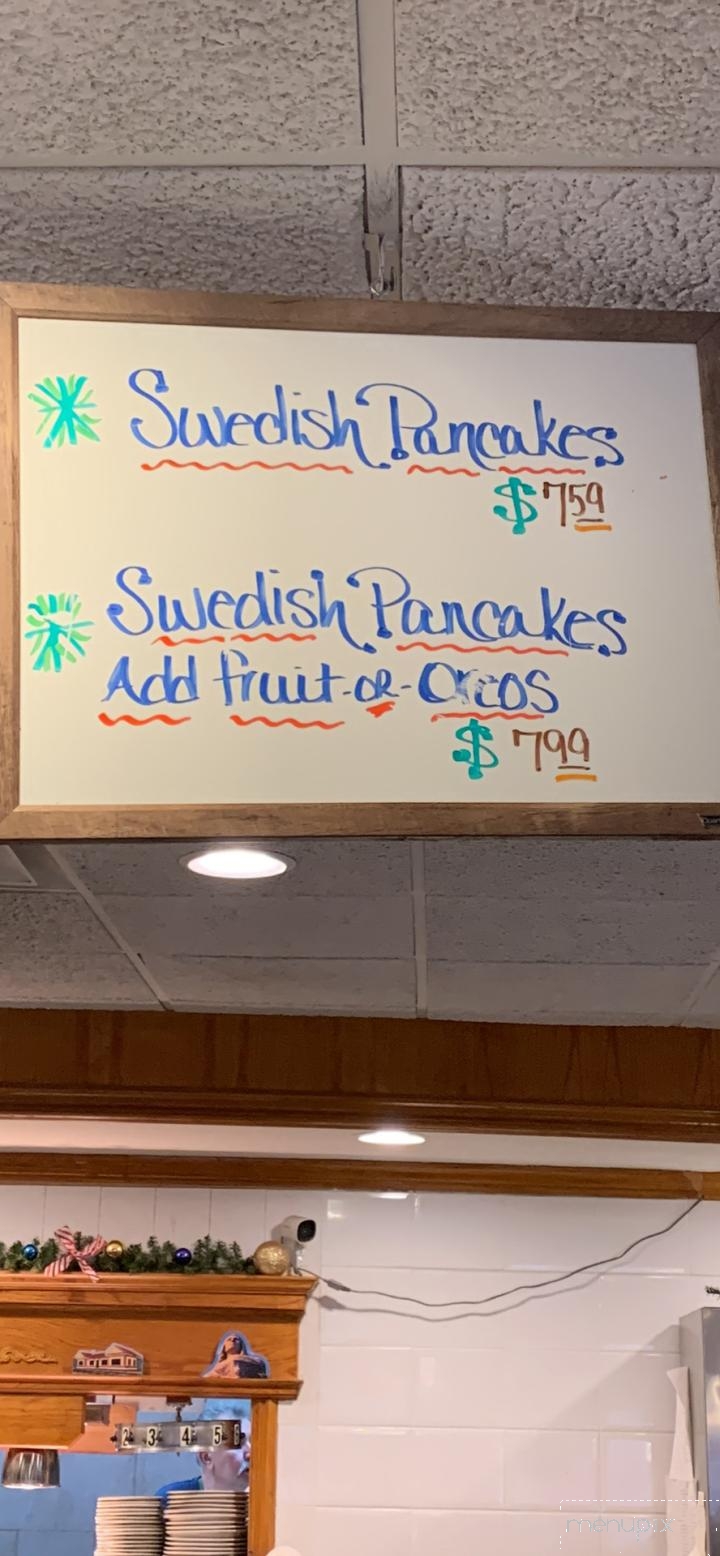 Swedish Pancakes
$759
Swedish Pancakes
Add fruit-OR-Oreos
$799
2 3 4 5
menupix